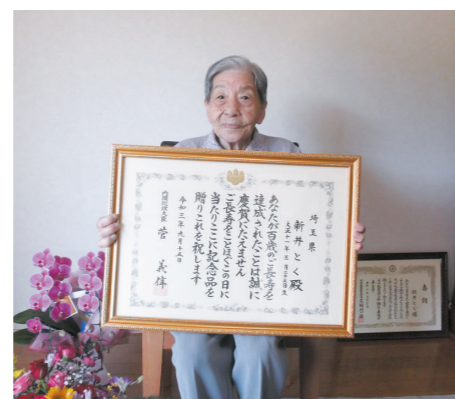 埼玉県
新井とく殿
大正十一年三月二十五日生
あなたが百歳のご長寿を
達成されたことは誠に
慶賀にたえません
ご長寿をことほぐこの日に
当たりここに記念品を
贈りこれを祝します
令和三年九月十五日
内閣総理大臣 菅 義偉
表彰